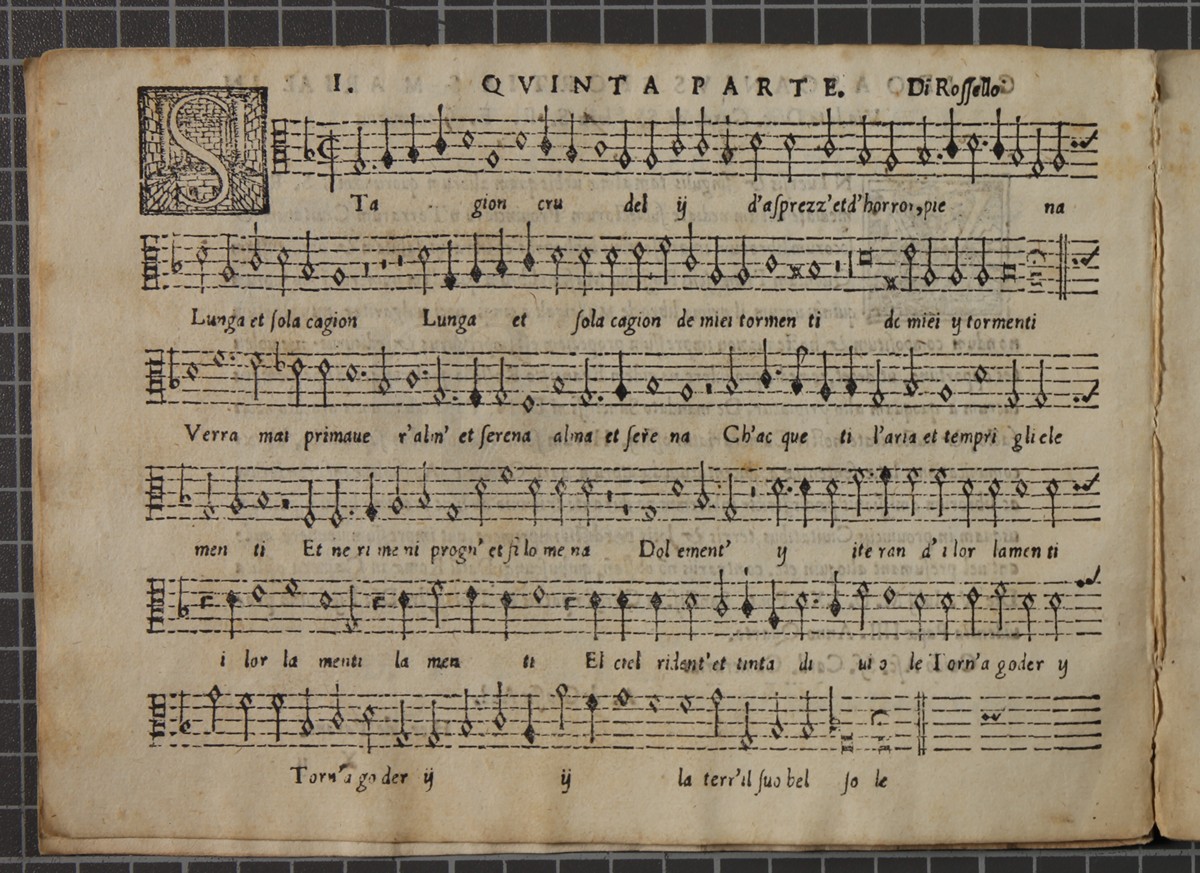 I. QVINTA PARTE. Di Roſſello
S
Ta gion cru del ij d'aſprezz'etd'horror, pie na
Lunga et ſola cagion Lunga et ſola cagion de miei tormen ti de miei ij tormenti
Verra mai primaue r'alm' et ſerena alma et ſere na Ch'ac que ti l'aria et tempri gli ele
men ti Et ne ri me ni progn' et fi lo me na Dol cement' ij ite ran d'i lor lamen ti
i lor la menti la men ti El ciel rident'et tinta di ui o le Torn'a goder ij
Torn'a go der ij ij la terr'il ſuo bel ſo le